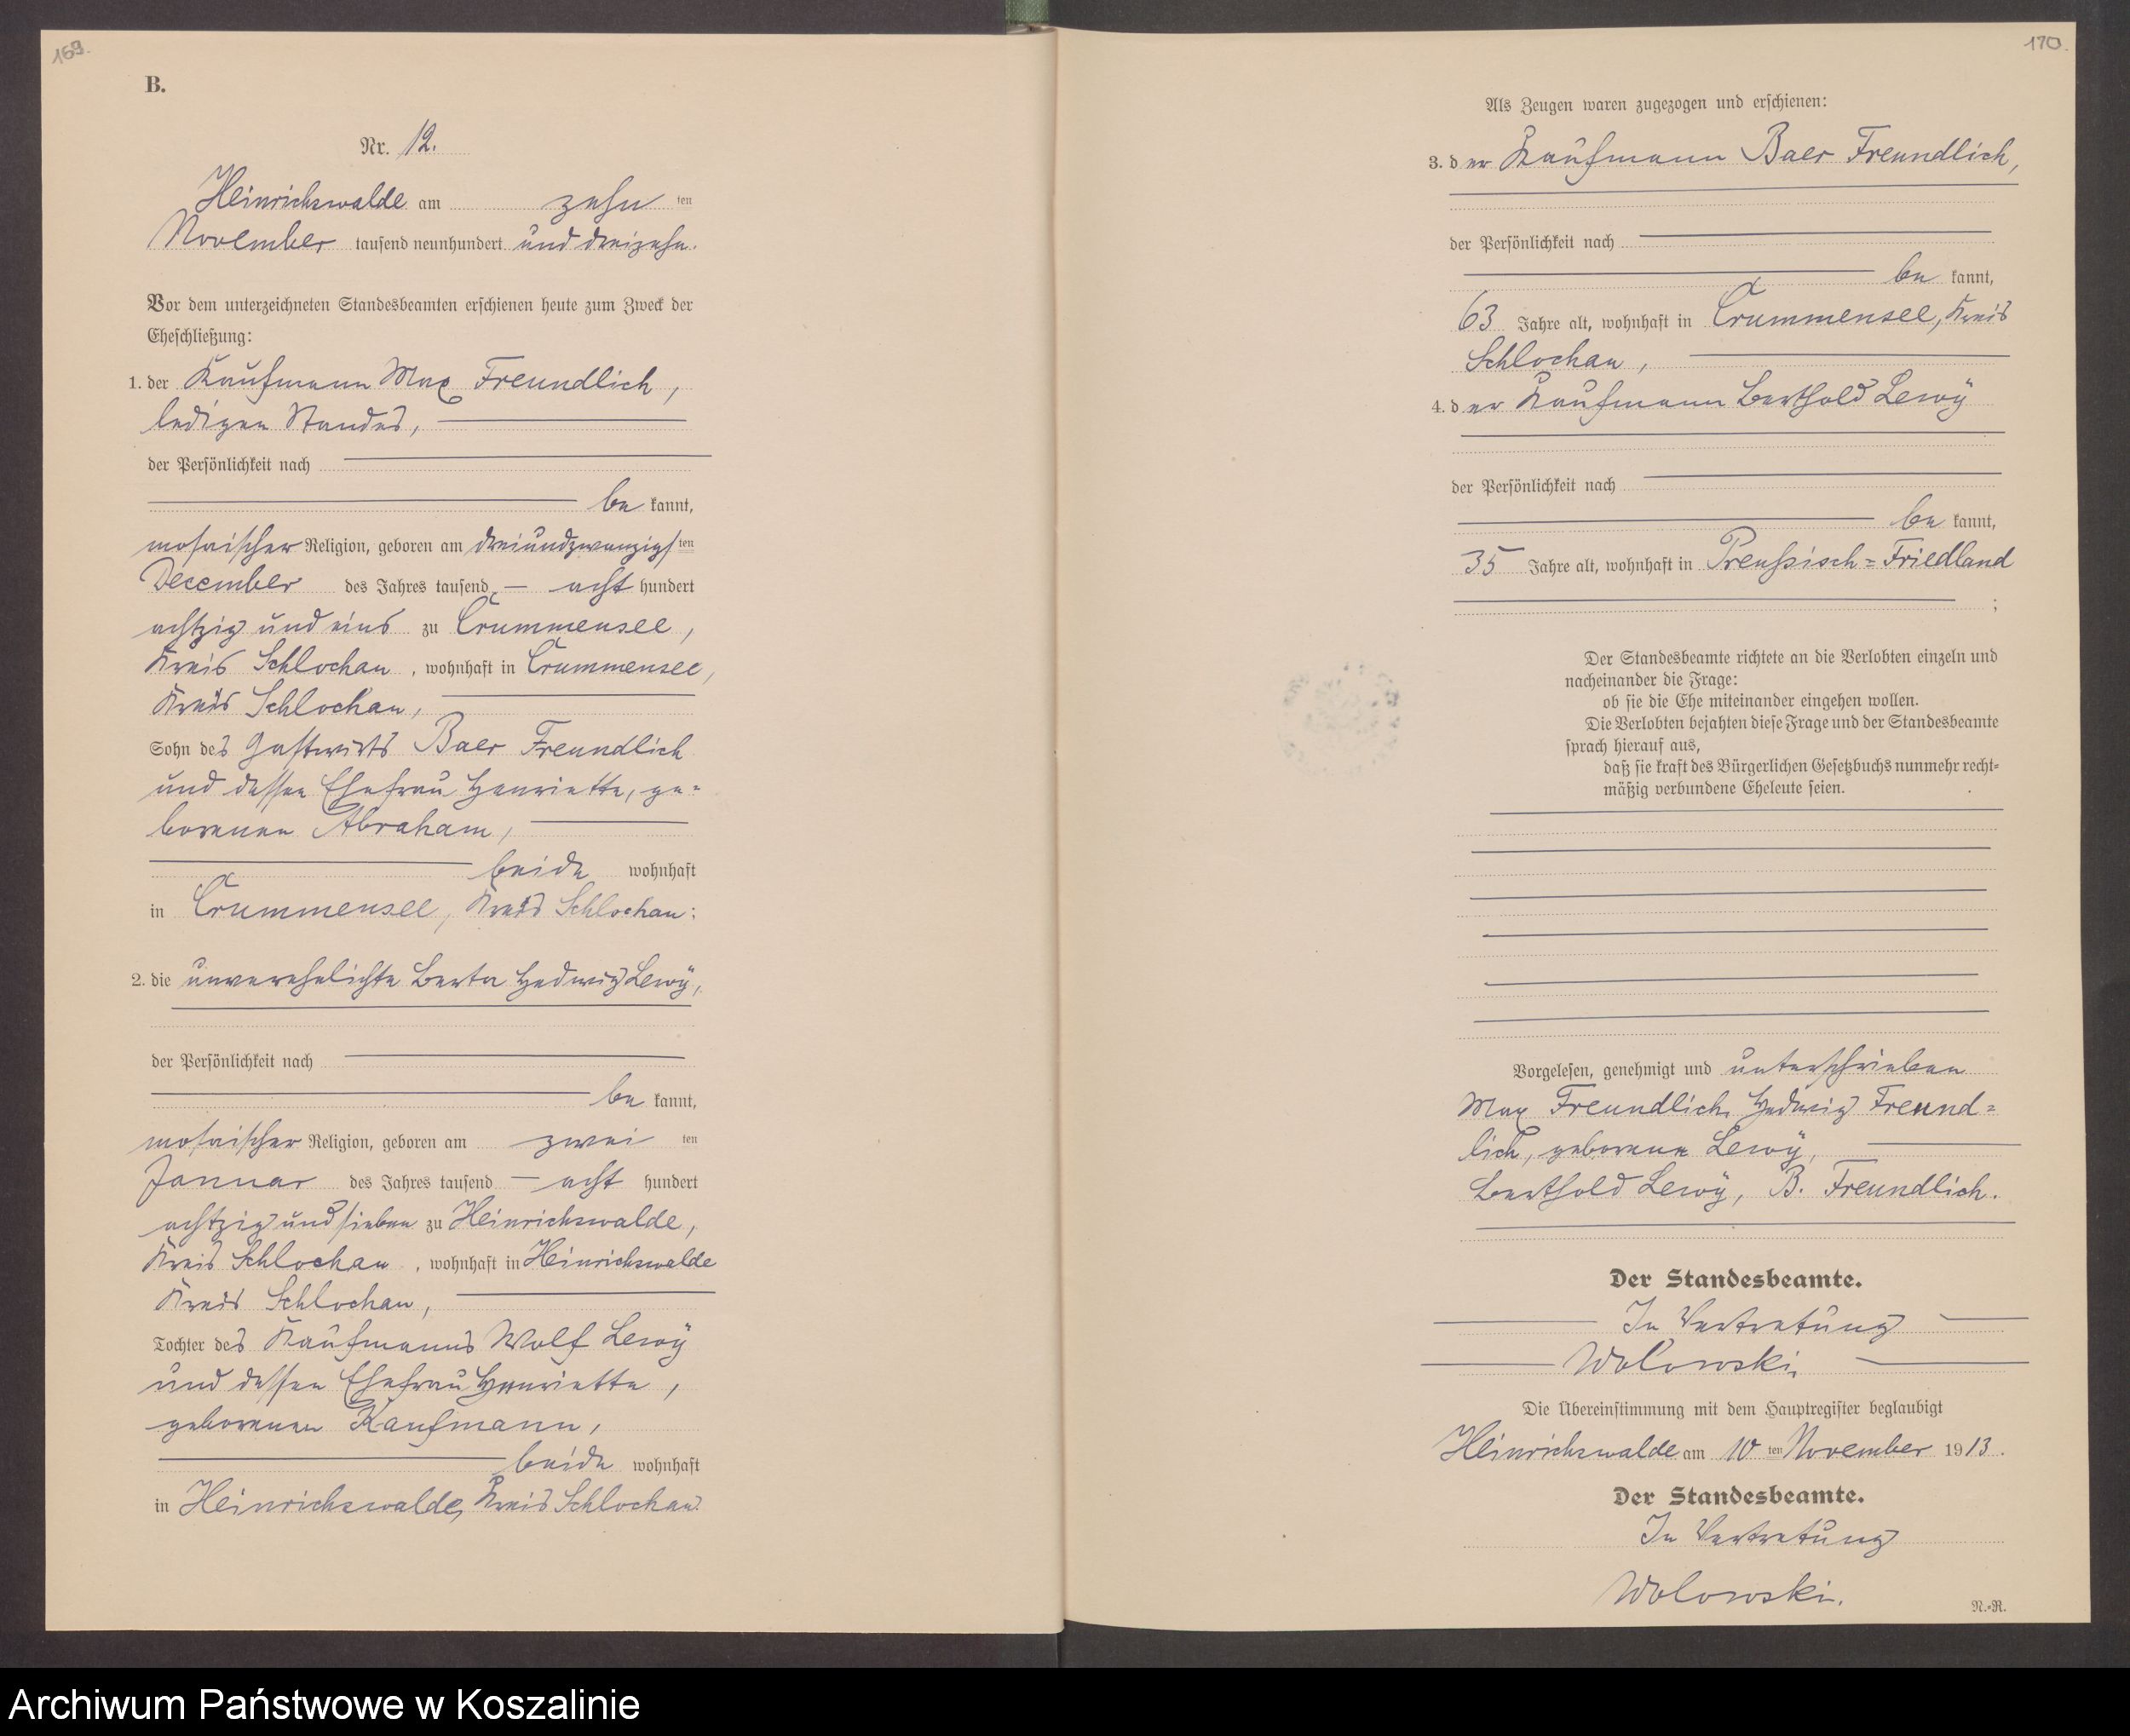 169.
B.
Nr. 12.
Heinrichswalde am zehn ten
November tausend neunhundert und dreizehn.
Vor dem unterzeichneten Standesbeamten erschienen heute zum Zweck der
Eheschließung:
1. der Kaufmann Max Freundlich,
ledigen Standes,
der Persönlichkeit nach
be kannt,
mosaischer Religion, geboren am dreiundzwanzigs ten
December des Jahres tausend acht hundert
achtzig und eins zu Crummensee,
Kreis Schlochau, wohnhaft in Crummensee,
Kreis Schlochau,
Sohn des Gastwirts Baer Freundlich
und dessen Ehefrau Henriette, ge=
borenen Abraham,
beide wohnhaft
in Crummensee, Kreis Schlochau;
2. die unverehelichte Berta Hedwig Lewÿ,
der Persönlichkeit nach
be kannt,
mosaischer Religion, geboren am zwei ten
Januar des Jahres tausend acht hundert
achtzig und sieben zu Heinrichswalde,
Kreis Schlochau, wohnhaft in Heinrichswalde
Kreis Schlochau,
Tochter des Kaufmanns Wolf Lewÿ
und dessen Ehefrau Henriette,
geborenen Kaufmann,
beide wohnhaft
in Heinrichswalde, Kreis Schlochau.
170.
Als Zeugen waren zugezogen und erschienen:
3. der Kaufmann Baer Freundlich,
der Persönlichkeit nach
be kannt,
63 Jahre alt, wohnhaft in Crummensee, Kreis
Schlochau,
4. der Kaufmann Berthold Lewÿ
der Persönlichkeit nach
be kannt,
35 Jahre alt, wohnhaft in Preußisch=Friedland
;
Der Standesbeamte richtete an die Verlobten einzeln und
nacheinander die Frage:
ob sie die Ehe miteinander eingehen wollen.
Die Verlobten bejahten diese Frage und der Standesbeamte
sprach hierauf aus,
daß sie kraft des Bürgerlichen Gesetzbuchs nunmehr recht=
mäßig verbundene Eheleute seien.
Vorgelesen, genehmigt und unterschrieben
Max Freundlich, Hedwig Freund=
lich, geborene Lewÿ,
Berthold Lewÿ, B. Freundlich.
Der Standesbeamte.
In Vertretung
Wolowski.
Die Übereinstimmung mit dem Hauptregister beglaubigt
Heinrichswalde am 10 ten November 1913.
Der Standesbeamte.
In Vertretung
Wolowski.
N.=R.
Archiwum Państwowe w Koszalinie